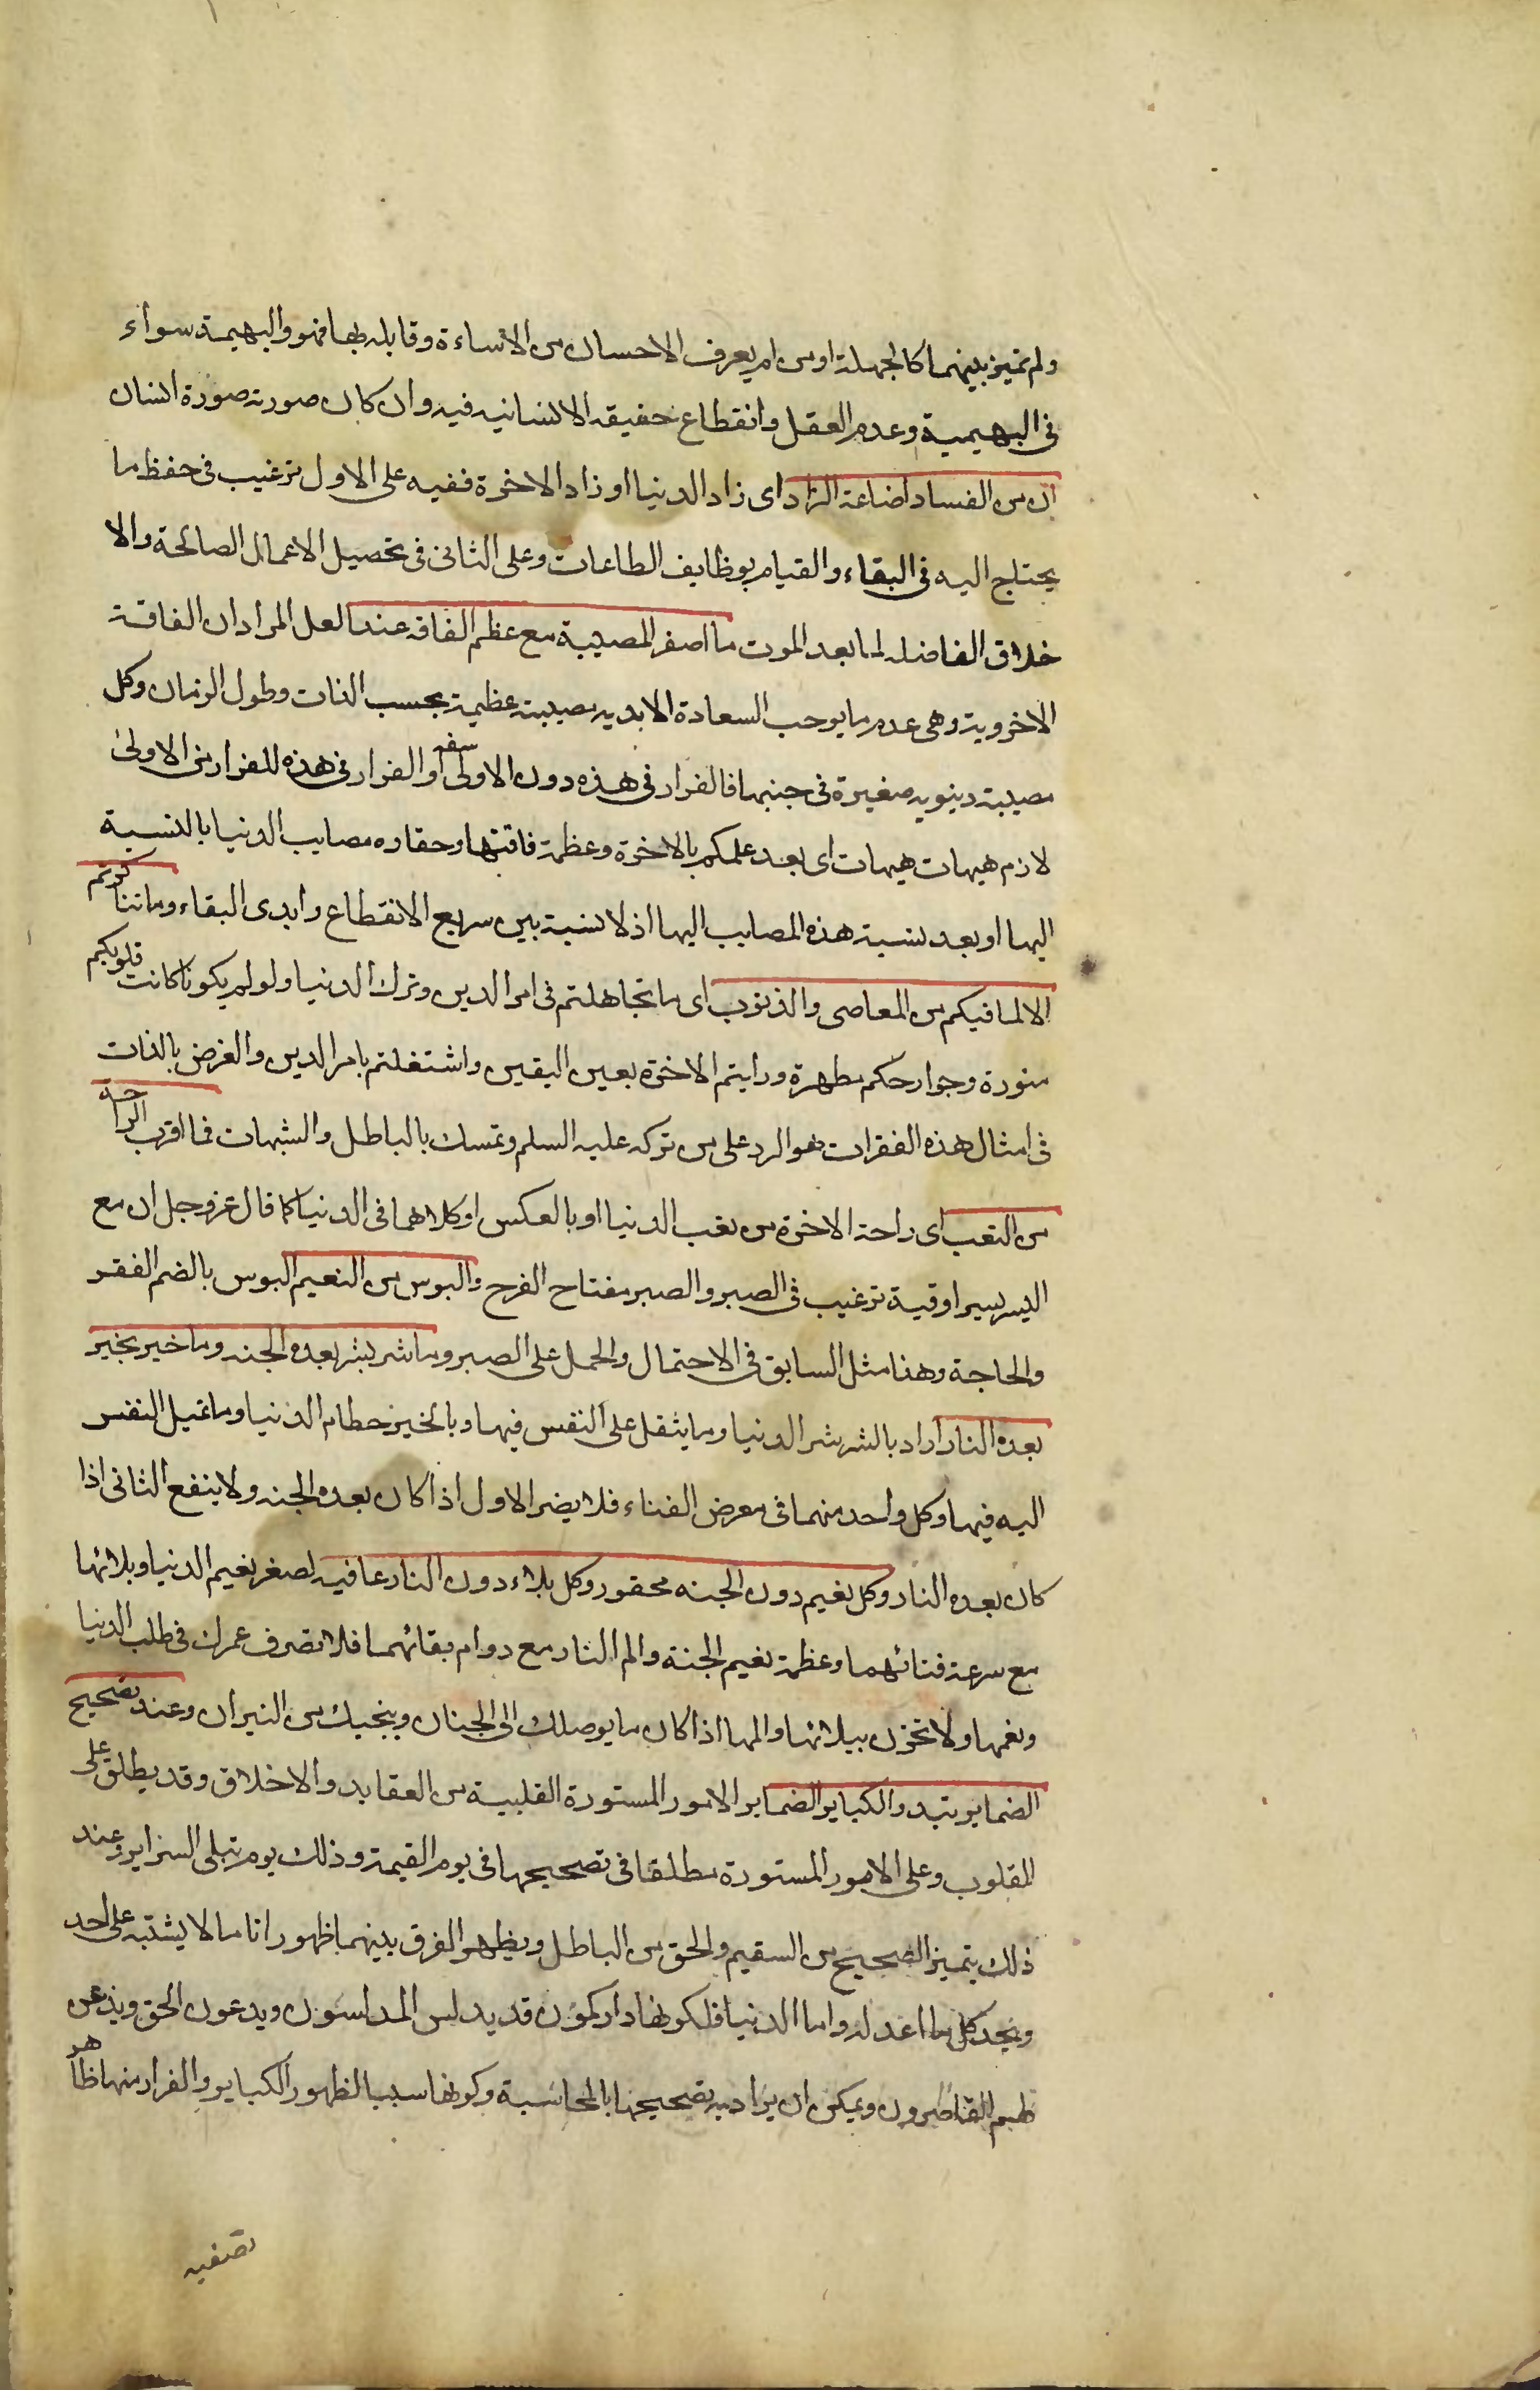 ولم تميز بينهما كالجهلة او من لم يعرف الاحسان من الاساءة وقابله بها فهو والبهيمة سواء
فى البهيمية وعدم العقل وانقطاع حقيقه الانسانيه فيه وان كان صورته صورة انسان
ان من الفساد اضاعة الزاد اى زاد الدنيا او زاد الاخرة ففيه على الاول ترغيب فى حفظ ما
يحتاج اليه فى البقاء والقيام بوظايف الطاعات وعلى الثانى فى تحصيل الاعمال الصالحة والا
خلاق الفاضله لما بعد الموت ما اصغر المصيبة مع عظم الفاقه عندا لعل المراد ان الفاقة
الاخروية وهى عدم ما يوجب السعادة الابديه مصيبته عظيمة بحسب الذات وطول الزمان وكل
مصيبة دينويه صغيرة فى جنبها فالفرار فى هذه دون الاولى سفه او الفرار فى هذه للفرار من الاولى
لازم هيهات هيهات اى بعد علمكم بالاخرة وعظمة فاقتها وحقاره مصايب الدنيا بالنسبة
اليها او بعد نسبة هذه المصايب اليها اذ لا نسبة بين سريع الانقطاع وابدى البقاء وما تناكرتم
الا لما فيكم من المعاصى والذنوب اى ما تجاهلتم فى امر الدين وترك الدنيا ولو لم يكونا كانت قلوبكم
منورة وجوارحكم مطهرة ورايتم الاخرة بعين اليقين واشتغلتم بامر الدين والغرض بالذات
فى امثال هذه الفقرات هو الرد على من تركه عليه السلم وتمسك بالباطل والشبهات فما اقرب الراحة
من التعب اى راحة الاخرة من تعب الدنيا او بالعكس او كلاهما فى الدنيا كما قال عز وجل ان مع
اليسر يسرا وقية ترغيب فى الصبر والصبر مفتاح الفرح والبوس من النعيم البوس بالضم الفقر
والحاجة وهذا مثل السابق فى الاحتمال والحمل على الصبر وما شر بشر بعده الجنه وما خير بخير
بعده النار اراد بالشر شر الدنيا وما يثقل على النفس فيها وبالخير حطام الدنيا وما تميل النفس
اليه فيها وكل واحد منهما فى معرض الفناء فلا يضر الاول اذا كان بعده الجنه ولا ينفع الثانى اذا
كان بعده النار وكل نعيم دون الجنه محقور وكل بلاء دون النار عافيه لصغر نعيم الدنيا وبلائها
مع سرعة فنائهما وعظمة نعيم الجنة والم النار مع دوام بقائهما فلا تصرف عمرك فى طلب الدنيا
ونعمها ولا تحزن ببلائها والمها اذا كان ما يوصلك الى الجنان وينجيك من النيران وعند تصحيح
الضماير يتبدو الكباير الضماير الامور المستورة القلبية من العقايد والاخلاق وقد يطلق على
القلوب وعلى الامور المستورة مطلقا فى تصحيحها فى يوم القيمة وذلك يوم تبلى السراير وعند
ذلك يتميز الصحيح من السقيم والحق من الباطل ويظهر الفرق بينهما ظهورا تاما لا يشتبه على احد
ويجد كل ما اعد له واما الدنيا فلكونها دار كمون قد يدلس المدلسون ويدعون الحق ويذعن
لهم القاصرون ويمكن ان يراد به تصحيحها بالمحاسبة وكونها سببا لظهور الكباير والفرار منها ظاهر
تصفيه